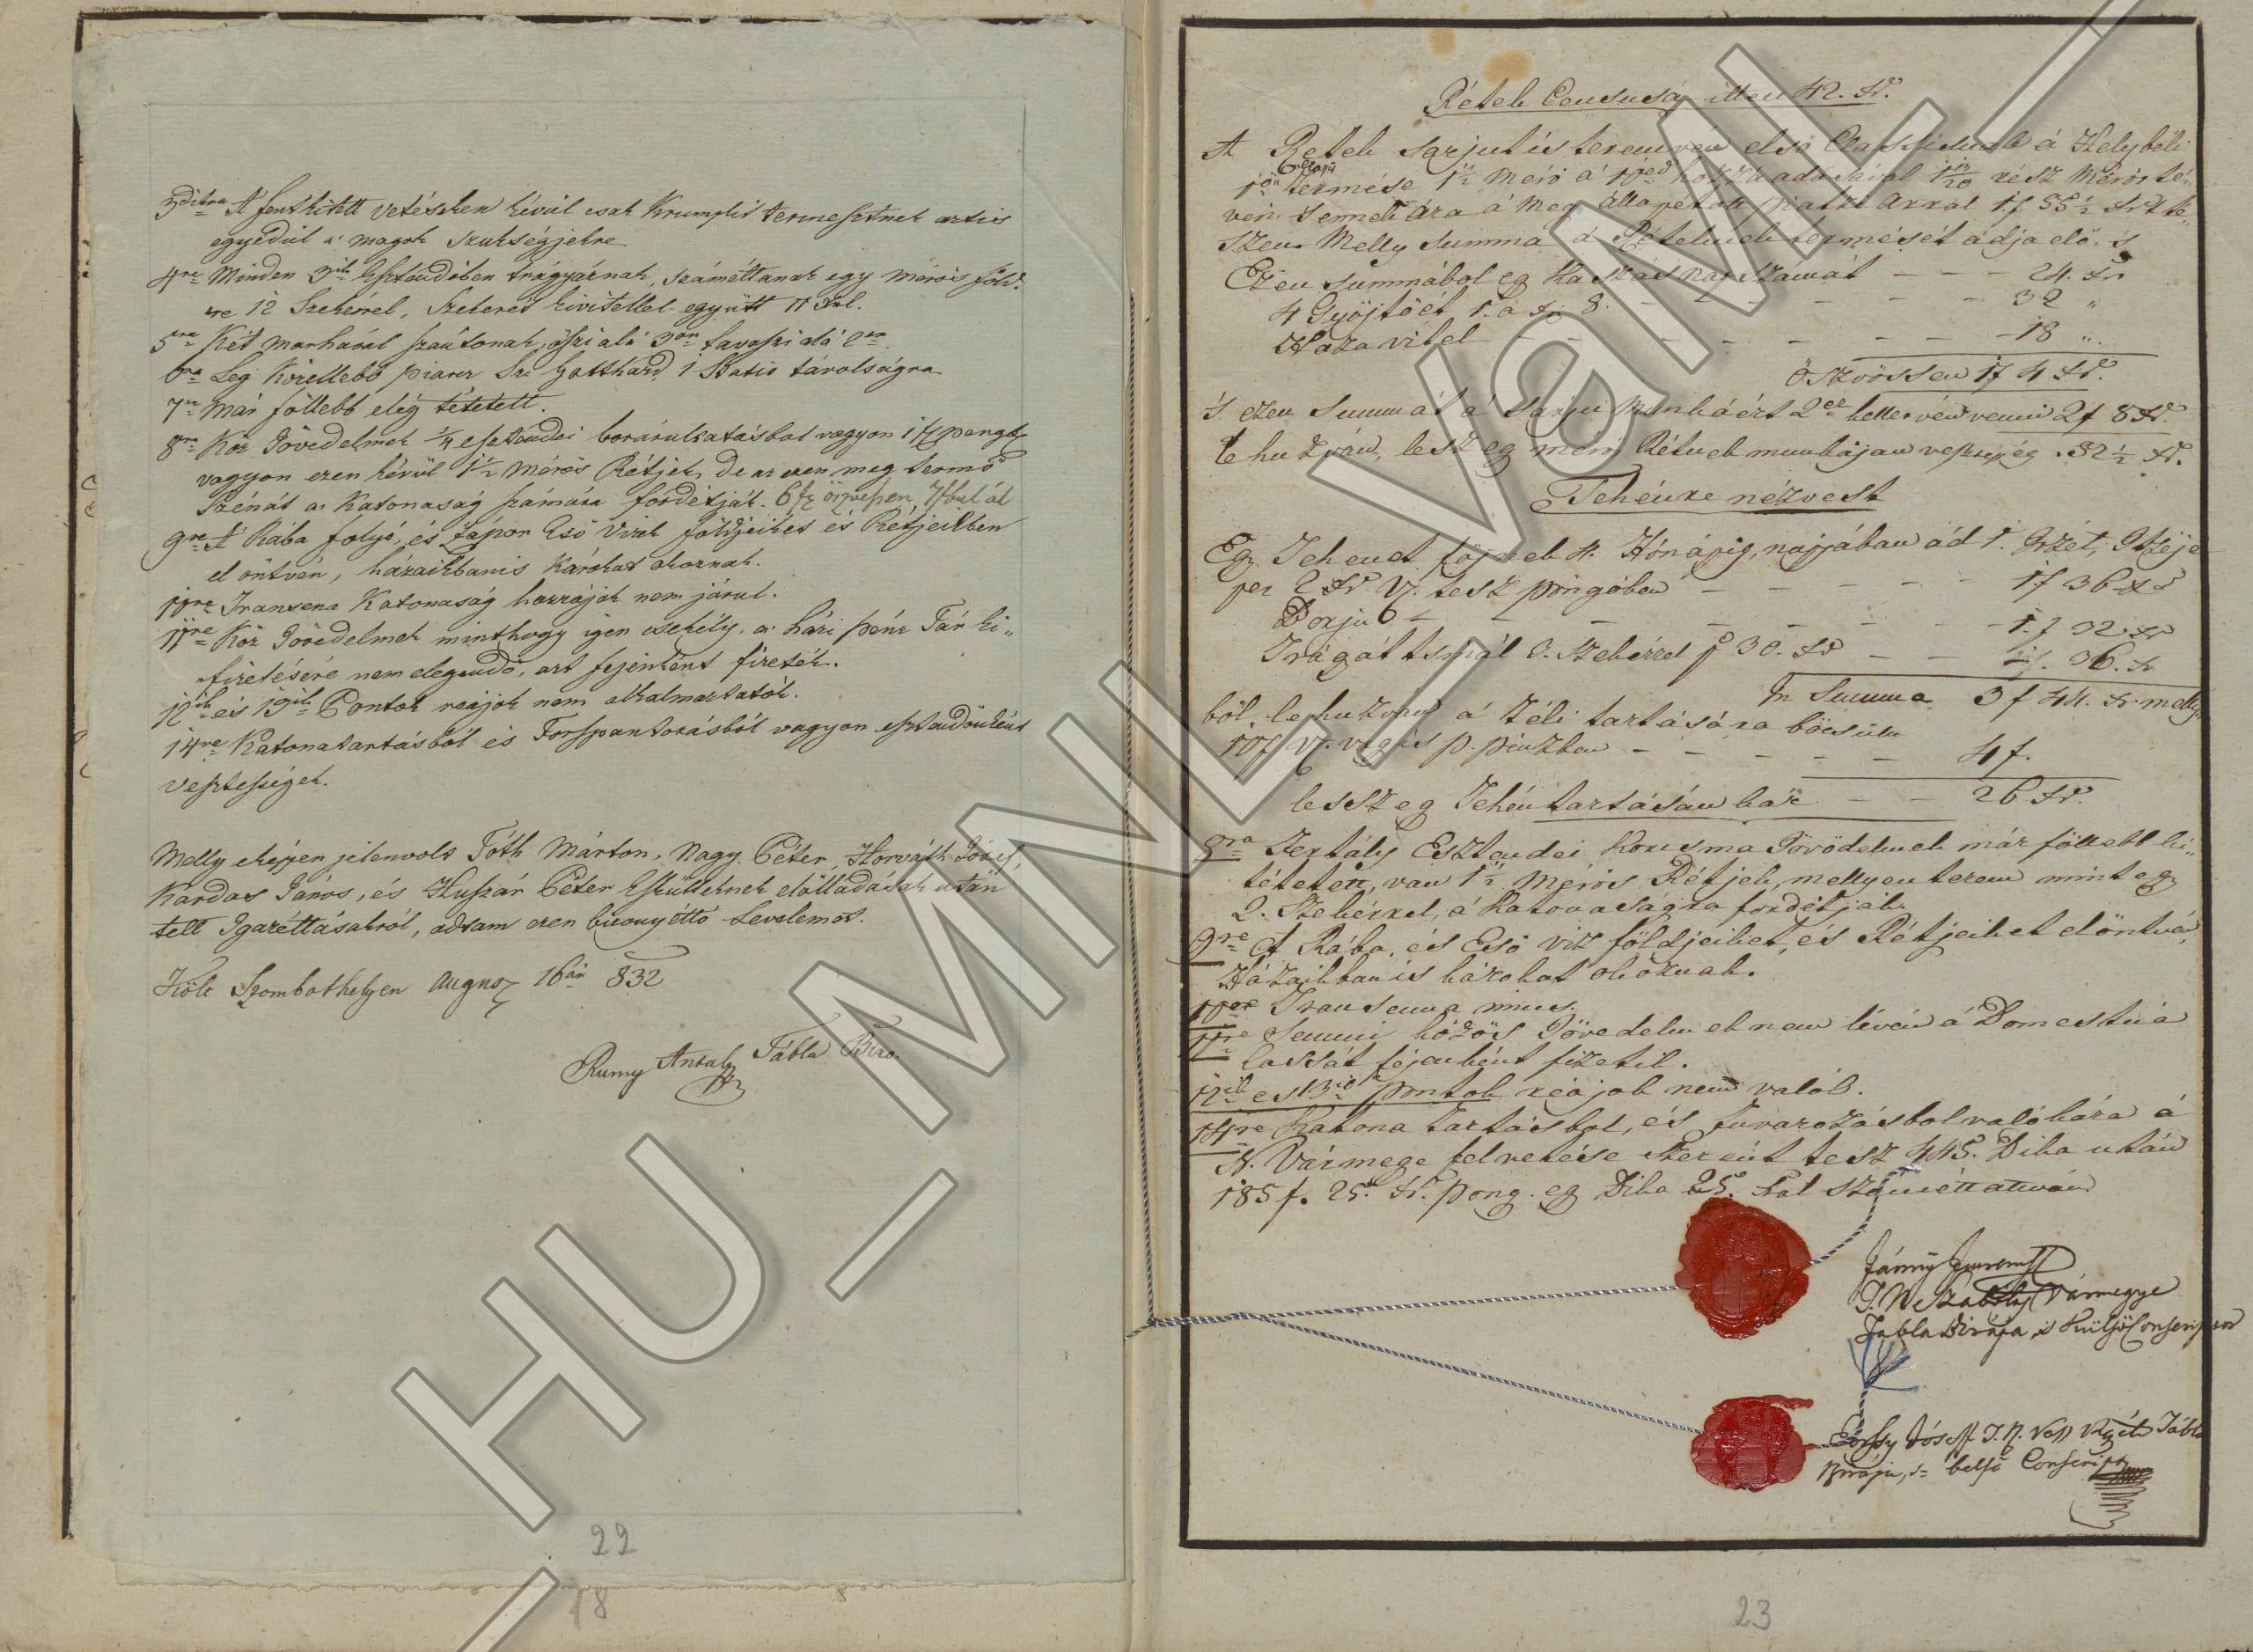 3dikra A fentkitett vetéseken kévül csak Krumplit termesztnek aztis
egyedül a magok szükségjekre
4re Minden 3ik Esztendőben trágyáznak, száméttanak egy mérős föld-
re 12 Szekérrel, Szekeret kivitellel együtt 11 Xrl.
5re Két marhával szántonak, őszi alá 3or tavaszi alá 2er
6ra Leg Közellebb piarcz Sz: Gotthárd 1 Statio távolságra
7re Már föllebb elég tétetett.
8re Köz Jövedelmek 1/4 esztendei borárultatásbol vagyon 17 pengő
vagyon ezen kévül 1 1/2 Mérős Rétjek, de az ezen meg termő
Szénát a Katonaság számára fordétják.
9re A Rába folyó, és Zápor Eső Vizek földjeiket és Rétjeikben
el öntvén, házaikbanis károkat okoznak.
10re Transena Katonaság hozzájok nem járul.
11re Köz Jövedelmek minthogy igen csekély, a házi pénz Tár ki-
fizetésére nem elegendő, azt fejenként fizetik.
12ik és 13ik Pontok reájok nem alkalmaztatók.
14re Katonatartásból és Forspontozásból vagyon esztendőnként
veszteségek.
Melly eképpen jelenvolt Tóth Márton, Nagy Péter, Horváth Jósef,
Kardos János, és Huszár Péter Eskütteknek előlladásak után
tett Igazéttásakról, adtam ezen bizonyéttó Levelemet.
Költ Szombathelyen August 16án 832
Rumy Antal Tábla Biró
22
18
Rétek Censusa itten 42. Xr.
A Rétek sarjut is teremvén első Classisunak á Helybéli
vén ennek ára á meg állapétott piatzi árral 1f 55 1/2 Xrt té-
szen Melly Summa a Réteknek termését adja elő. is
Ezen summábol eg Kaszás nap számát - - - 24. Xr
4 Gyöjtőét 1. a Xr 8. - - - 32 "
Haza vitel - - - 18 "
Öszvössen 1f 4 Xr.
's ezen Summát á sarju munkáért 2er kelletvén venni 2f 8 Xr.
le huzván, lesz eg mérő Rétnek munkájan veszteség . 52 1/2 Xr.
Tehénre nézvest
Eg Tehenet föjnek 4. Hónápig, napjában ád 1. Itzét, Itzéje
per 2 Xr V. tesz pöngőben - - - 1f 36 Xr
Borju - - - 1f 32 Xr
Trágát tsinál 2. Szekérrel p 30. Xr - - - 36. Xr
In Summa 3f 44. Xr melly-
ből le huzván á téli tartására böcsülu
10f V. vagyis p. pénzben - - - 4f.
lessz eg Tehén tartásán kár - - 26 Xr.
8ra Fertály Esztendei Korcsma Jövödelmek már föllebb ki-
tétetett, van 1 1/2 Mérős Rétjek, mellyen terem mint eg
2. Szekérrel, á Katonaságra fordétják.
9re A Rába, és Eső viz földjeiket, és Rétjeiket elöntvén
Házaikban is károkat okoznak.
10re Transenna nincs.
11re Semmi közös Jövedelmek nem lévén á Domestica
Cassát fejenként fizetik.
12ik és 13ik pontok reájok nem valók.
14re Katona tartásbol, és Fuvarozásbol való kára á
N. Vármege felvetése szerént tesz 445. Dika után
185 f. 25. Xr. pong. eg Dika 25. Xral száméttatván
T. N. Szabolcs Vármegye
Tábla Birája és Külső Conscriptor
Jósef T. N. Vas Vgyék Tábla
Birája, 's belső Conscriptor
23
HU_MNL_VaML_I